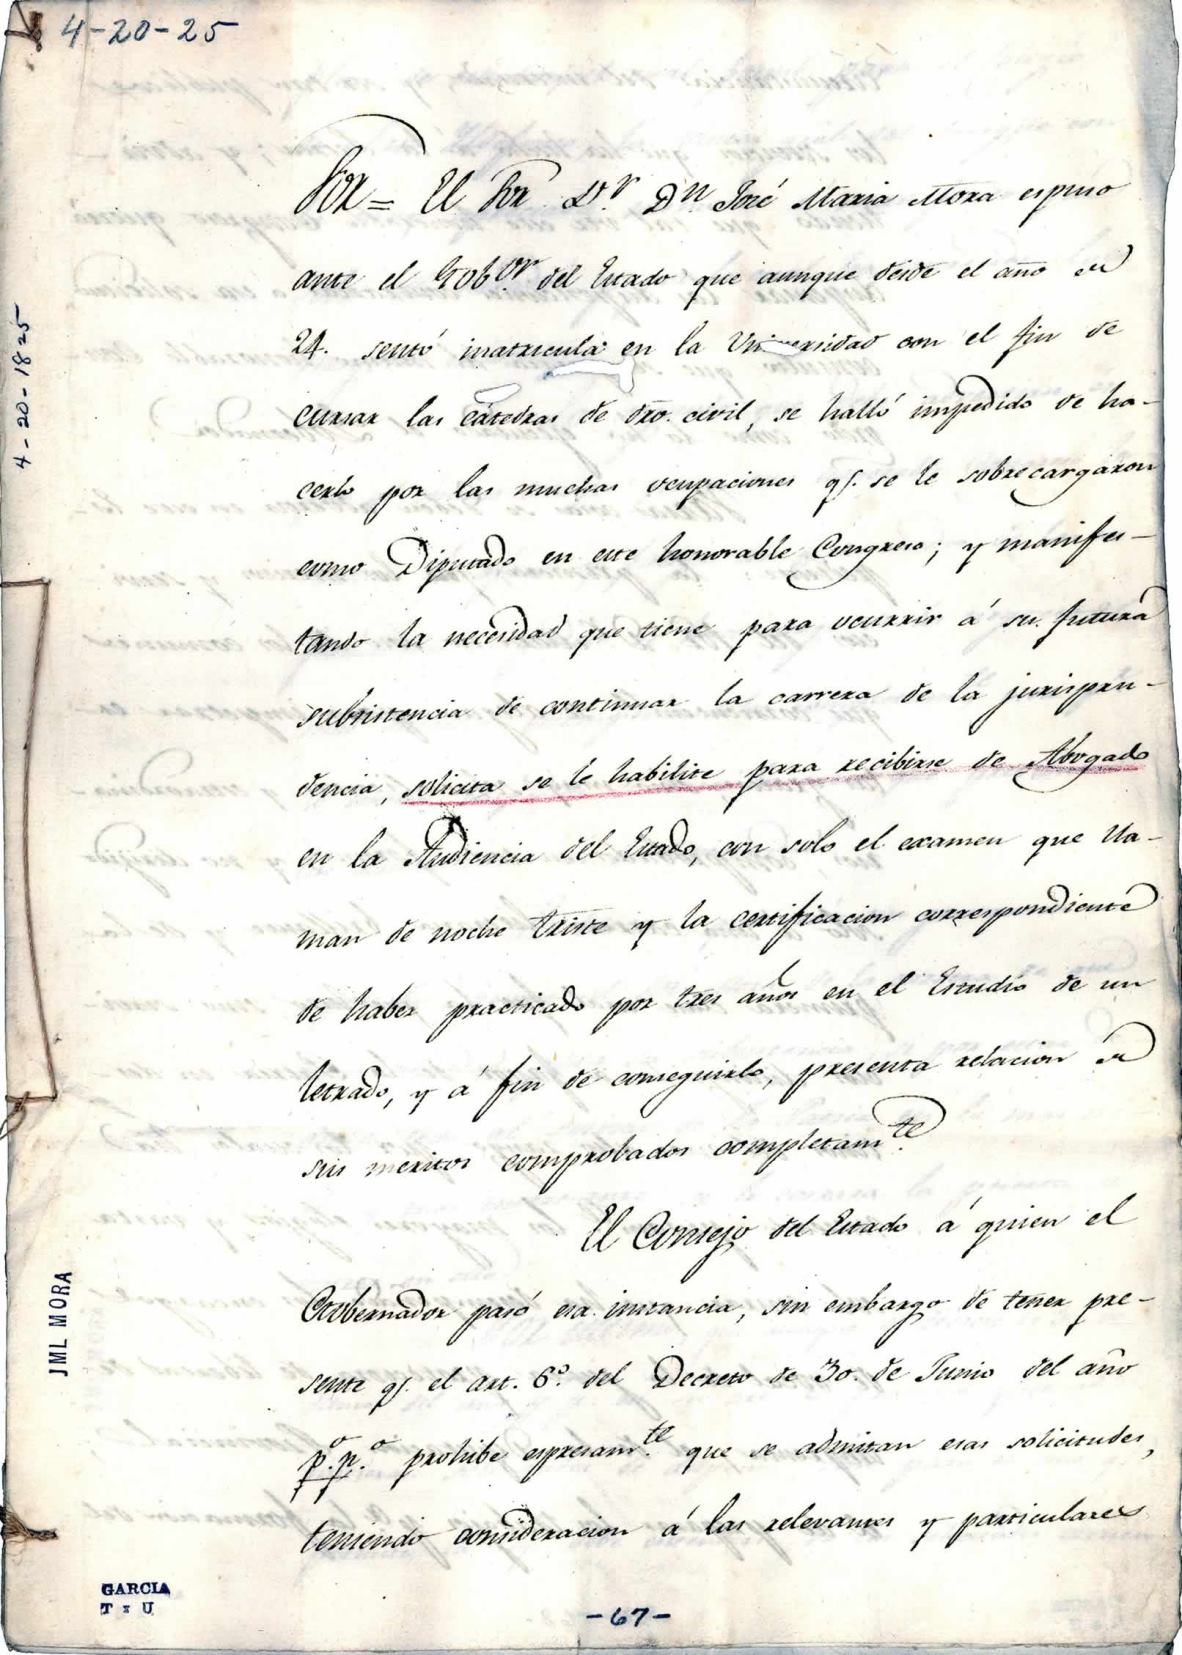 4-20-25
Sor = El Sor Dr Dn José Maria Mora espuso
ante el Gobor. del Estado que aunque desde el año de
24. sentó matricula en la Universidad con el fin de
cursar las cátedras de dro. civil, se halló impedido de ha-
cerlo por las muchas ocupaciones q. se le sobrecargaron
como Diputado en este honorable Congreso; y manifes-
tando la necesidad que tiene para ocurrir á su futura
subsistencia de continuar la carrera de la jurispru-
dencia, solicita se le habilite para recibirse de Abogado
en la Audiencia del Estado, con solo el examen que lla-
man de noche triste y la certificacion correspondiente
de haber practicado por tres años en el Estudio de un
letrado, y á fin de conseguirlo, presenta relacion de
sus meritos comprobados completamte.
El Consejo del Estado á quien el
Gobernador pasó esa instancia, sin embargo de tener pre-
sente q. el art. 6º. del Decreto de 30. de Junio del año
p.o p.o prohibe espresamte. que se admitan esas solicitudes,
teniendo consideracion á las relevantes y particulares
4-20-1825
JML MORA
GARCIA
T x U
-67-